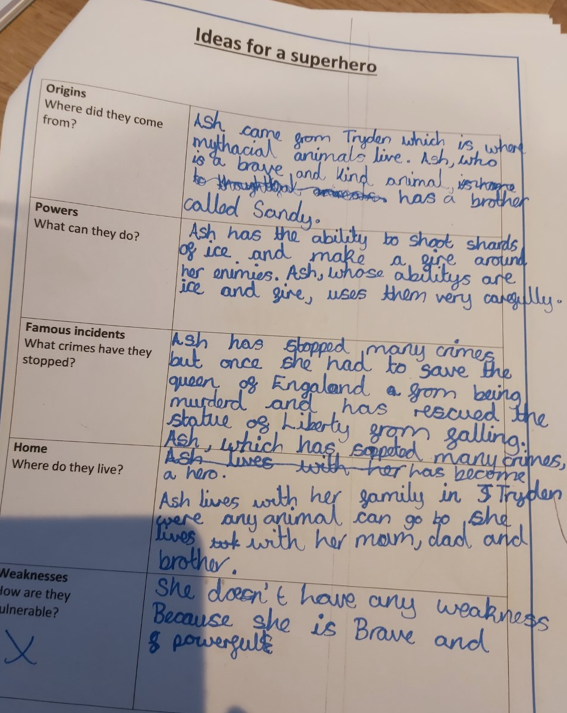 Ideas for a superhero
Origins
Where did they come
from?
Ash came from Tryden which is, where
mythacial animals live. Ash, who
is a brave and kind animal,
has a brother
called Sandy.
Powers
What can they do?
Ash has the ability to shoot shards
of ice and make a fire around
her enimies. Ash, whose abilitys are
ice and fire, uses them very carefully.
Famous incidents
What crimes have they
stopped?
Ash has stopped many crimes
but once she had to save the
queen of Engaland from being
murderd and has rescued the
statue of Liberty from falling.
Ash, which has sopped many crimes,
Ash lives with her has become
a hero.
Home
Where do they live?
Ash lives with her family in Tryden
were any animal can go to she
lives with her mam, dad and
brother.
Weaknesses
How are they
ulnerable?
X
She doesn't have any weakness
Because she is Brave and
powerfull